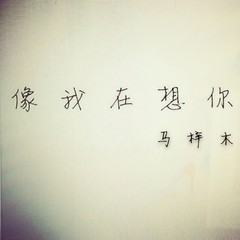 像我在想你
马梓木